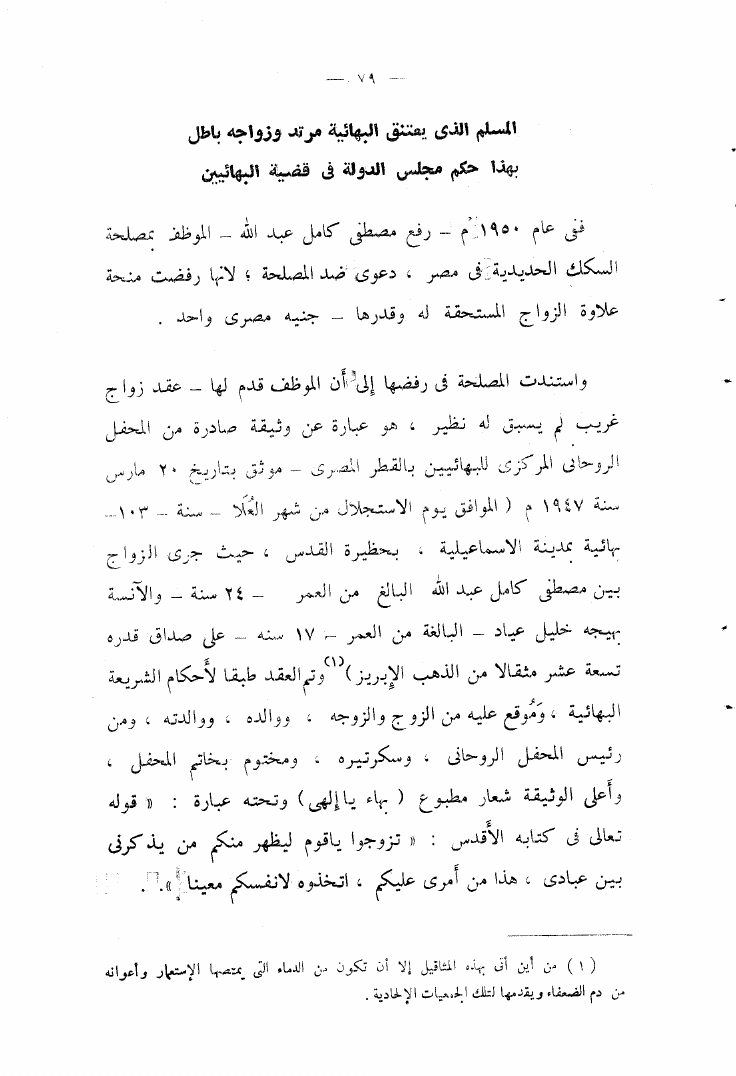 — ٧٩ —
المسلم الذى يعتنق البهائية مرتد وزواجه باطل
بهذا حكم مجلس الدولة فى قضية البهائيين
ففى عام ١٩٥٠ م – رفع مصطفى كامل عبد الله – الموظف بمصلحة
السكك الحديدية فى مصر ، دعوى ضد المصلحة ؛ لانها رفضت منحة
علاوة الزواج المستحقة له وقدرها – جنيه مصرى واحد .
واستندت المصلحة فى رفضها إلى أن الموظف قدم لها – عقد زواج
غريب لم يسبق له نظير ، هو عبارة عن وثيقة صادرة من المحفل
الروحانى المركزى للبهائيين بالقطر المصرى – موثق بتاريخ ٢٠ مارس
سنة ١٩٤٧ م ( الموافق يوم الاستجلال من شهر العُلَا – سنة – ١٠٣ –
بهائية بمدينة الاسماعيلية ، بحظيرة القدس ، حيث جرى الزواج
بين مصطفى كامل عبد الله البالغ من العمر – ٢٤ سنة – والآنسة
بهيجه خليل عياد – البالغة من العمر – ١٧ سنه – على صداق قدره
تسعة عشر مثقالا من الذهب الإبريز )(١) وتم العقد طبقا لأحكام الشريعة
البهائية ، وَمُوقع عليه من الزوج والزوجه ، ووالده ، ووالدته ، ومن
رئيس المحفل الروحانى ، وسكرتيره ، ومختوم بخاتم المحفل ،
وأعلى الوثيقة شعار مطبوع ( بهاء يا إلهى ) وتحته عبارة : « قوله
تعالى فى كتابه الأقدس : « تزوجوا ياقوم ليظهر منكم من يذكرنى
بين عبادى ، هذا من أمرى عليكم ، اتخذوه لانفسكم معينا » .
( ١ ) من أين أتى بهذه المثاقيل إلا أن تكون من الدماء التى يمتصها الإستعمار وأعوانه
من دم الضعفاء ويقدمها لتلك الجمعيات الإلحادية .